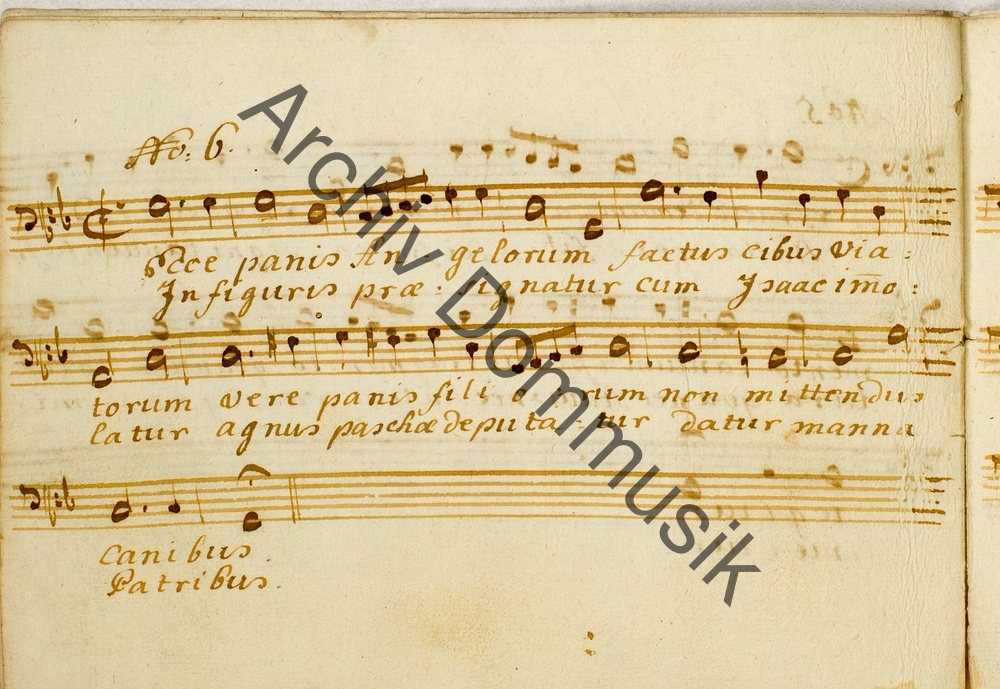 No: 6.
Ecce panis An - gelorum factus cibus via :
In figuris præ : signatur cum Isaac im̅o :
torum vere panis fili o : rum non mittendus
latur agnus paschæ deputa - tur datur manna
canibus.
Patribus.
Archiv Dommusik